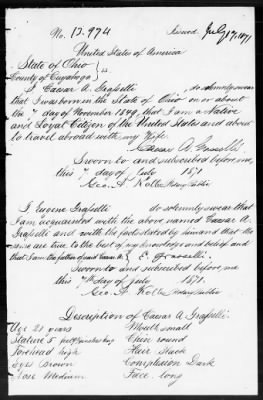 No. 13.974 Issued July 17, 1871
United States of America
State of Ohio
County of Cuyahoga } ss.
I Caesar A. Grasselli do solemnly swear
that I was born in the State of Ohio on or about
the 7 day of November 1849, that I am a Native
and Loyal Citizen of the United States and about
to travel abroad with my Wife.
Caesar A. Grasselli
Sworn to and subscribed before me,
this 7 day of July 1871.
Geo. A. Kolbe Notary Public
I, Eugene Grasselli do solemnly swear that
I am acquainted with the above named Caesar A.
Grasselli and with the facts stated by him and that the
same are true to the best of my knowledge and belief and
that I am the father of said Caesar A. } E. Grasselli.
Sworn to and subscribed before me
this 7th day of July 1871.
Geo. A. Kolbe Notary Public
Description of Caesar A. Grasselli.
Age 21 years Mouth small
Stature 5 feet inches Chin round
Forehead high Hair black
Eyes Brown Complexion Dark
Nose Medium Face long